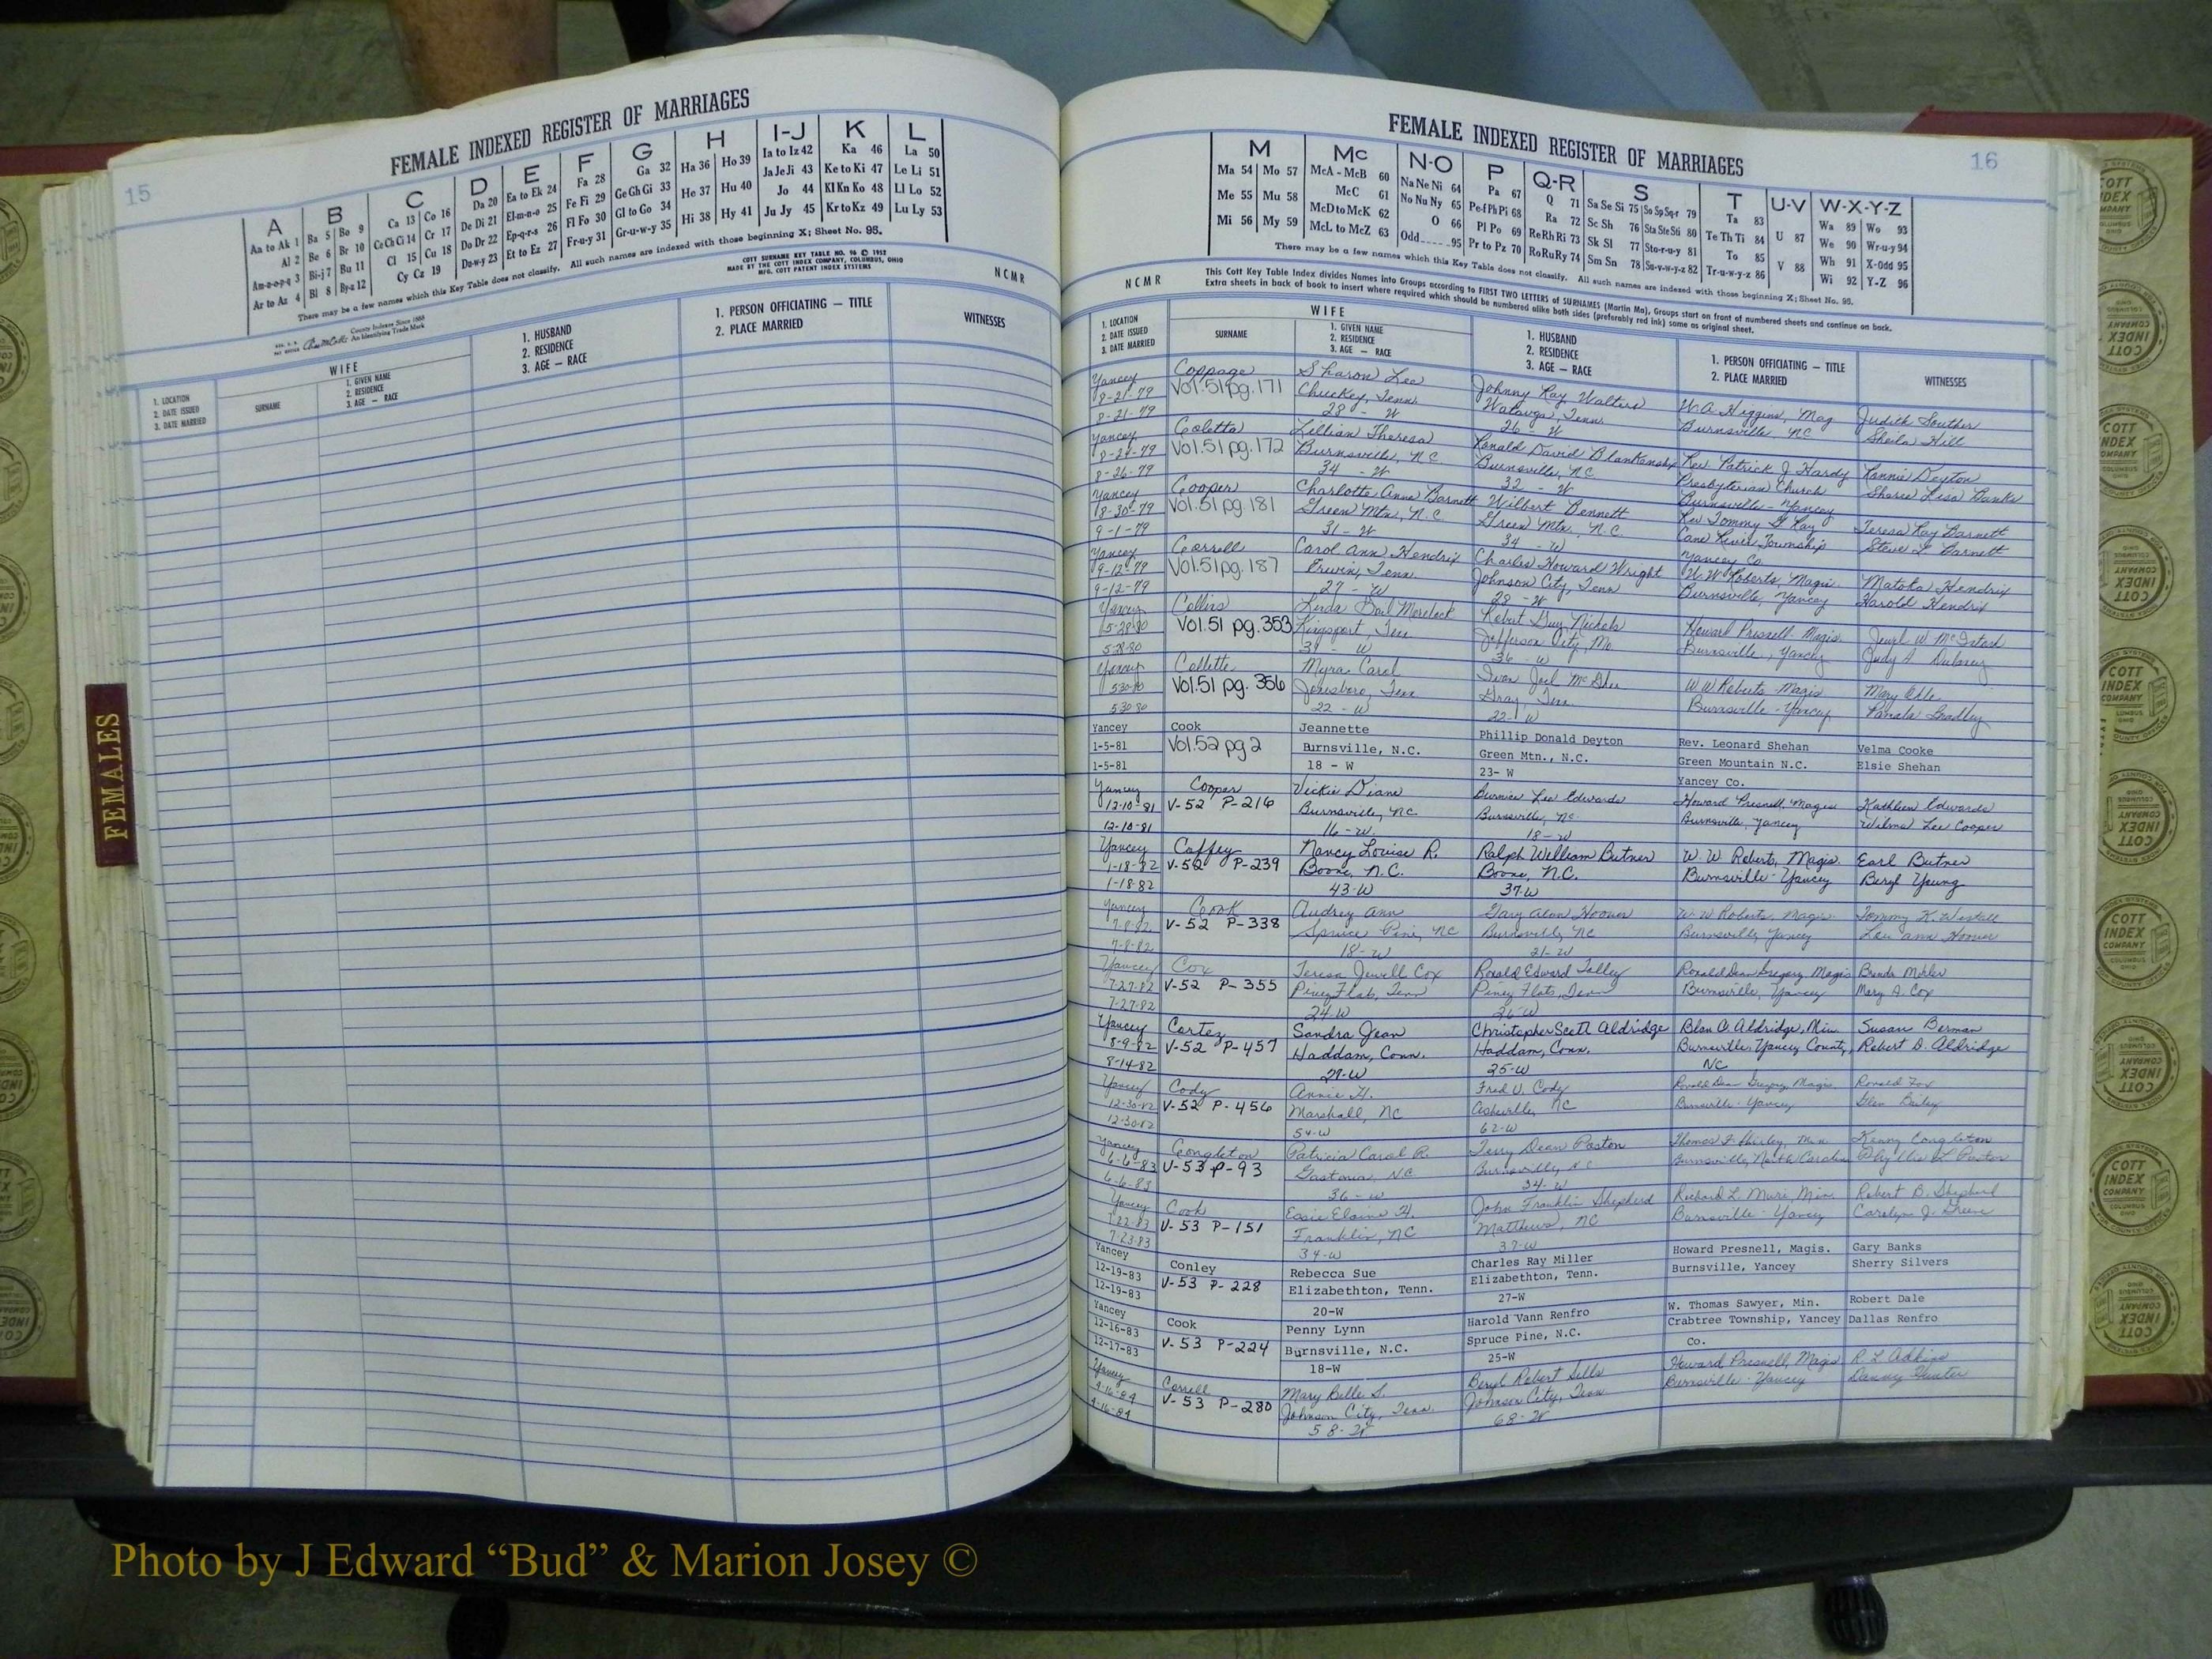 15
FEMALE INDEXED REGISTER OF MARRIAGES
A B C D E F G H I-J K L
Aa to Ak 1 Ba 5 Bo 9 Ca 13 Co 16 Da 20 Ea to Ek 24 Fa 28 Ga 32 Ha 36 Ho 39 Ia to Iz 42 Ka 46 La 50
Al 2 Be 6 Br 10 Ce Ch Ci 14 Cr 17 De Di 21 El-m-n-o 25 Fe Fi 29 Ge Gh Gi 33 He 37 Hu 40 Ja Je Ji 43 Ke to Ki 47 Le Li 51
Am-n-o-p-q 3 Bi-j 7 Bu 11 Cl 15 Cu 18 Do Dr 22 Ep-q-r-s 26 Fl Fo 30 Gl to Go 34 Hi 38 Hy 41 Jo 44 Kl Kn Ko 48 Ll Lo 52
Ar to Az 4 Bl 8 By-z 12 Cy Cz 19 Du-w-y 23 Et to Ez 27 Fr-u-y 31 Gr-u-w-y 35 Ju Jy 45 Kr to Kz 49 Lu Ly 53
There may be a few names which this Key Table does not classify. All such names are indexed with those beginning X; Sheet No. 95.
COTT SURNAME KEY TABLE NO. 96 © 1952
MADE BY THE COTT INDEX COMPANY, COLUMBUS, OHIO
MFG. COTT PATENT INDEX SYSTEMS
County Indexes Since 1888
An Identifying Trade Mark
NCMR
1. LOCATION
2. DATE ISSUED
3. DATE MARRIED
WIFE
SURNAME
1. GIVEN NAME
2. RESIDENCE
3. AGE — RACE
1. HUSBAND
2. RESIDENCE
3. AGE — RACE
1. PERSON OFFICIATING — TITLE
2. PLACE MARRIED
WITNESSES
FEMALES
FEMALE INDEXED REGISTER OF MARRIAGES
16
M Mc N-O P Q-R S T U-V W-X-Y-Z
Ma 54 Mo 57 McA - McB 60 Na Ne Ni 64 Pa 67 Q 71 Sa Se Si 75 So Sp Sq-r 79 Ta 83 Wa 89 Wo 93
Me 55 Mu 58 McC 61 No Nu Ny 65 Pe-f Ph Pi 68 Ra 72 Sc Sh 76 Sta Ste Sti 80 Te Th Ti 84 U 87 We 90 Wr-u-y 94
Mi 56 My 59 McD to McK 62 O 66 Pl Po 69 Re Rh Ri 73 Sk Sl 77 Sto-r-u-y 81 To 85 Wh 91 X-Odd 95
McL to McZ 63 Odd 95 Pr to Pz 70 Ro Ru Ry 74 Sm Sn 78 Su-v-w-y-z 82 Tr-u-w-y-z 86 V 88 Wi 92 Y-Z 96
There may be a few names which this Key Table does not classify. All such names are indexed with those beginning X; Sheet No. 95.
NCMR
This Cott Key Table Index divides Names into Groups according to FIRST TWO LETTERS of SURNAMES (Martin Ma), Groups start on front of numbered sheets and continue on back.
Extra sheets in back of book to insert where required which should be numbered alike both sides (preferably red ink) some as original sheet.
1. LOCATION
2. DATE ISSUED
3. DATE MARRIED
WIFE
SURNAME
1. GIVEN NAME
2. RESIDENCE
3. AGE — RACE
1. HUSBAND
2. RESIDENCE
3. AGE — RACE
1. PERSON OFFICIATING — TITLE
2. PLACE MARRIED
WITNESSES
Yancey Coppage Sharon Lee Johnny Ray Walters W.A. Higgins, Mag Judith Souther
8-21-79 Vol.51pg.171 Chuckey, Tenn. Watauga, Tenn. Burnsville NC Sheila Hill
8-21-79 28 - W 26 - W
Yancey Coletta Lillian Theresa Ronald David Blankenship Rev. Patrick J Hardy Rannie Deyton
8-24-79 Vol.51pg.172 Burnsville, NC Burnsville, NC Presbyterian Church Sharee Lisa Banks
8-26-79 34 - W 32 - W Burnsville - Yancey
Yancey Cooper Charlotte Anne Barnett Wilbert Bennett Rev Tommy G Ray Teresa Ray Barnett
8-30-79 Vol.51pg.181 Green Mtn, N.C. Green Mtn. N.C. Cane River Township Steve L Barnett
9-1-79 31 - W 34 - W Yancey Co
Yancey Correll Carol Ann Hendrix Charles Howard Wright W.W Roberts, Magis. Matoka Hendrix
9-12-79 Vol.51pg.187 Erwin, Tenn. Johnson City, Tenn Burnsville, Yancey Harold Hendrix
9-12-79 27 - W 28 - W
Yancey Collins Linda Gail Morelock Robert Guy Nichols Howard Presnell Magis.
5-28-80 Vol.51 pg.353 Kingsport, Tenn Jefferson City, Mo. Burnsville, Yancey Judy A Dulaney
5-28-80 36 - W
Yancey Collette Myra Carol W W Roberts Magis
5-30-80 Vol.51 pg.356 Jonesboro, Tenn Gray, Tenn Burnsville - Yancey
5-30-80 22 - W 22 - W
Yancey Cook Jeannette Phillip Donald Deyton Rev. Leonard Shehan Velma Cooke
1-5-81 Vol.52 pg2 Burnsville, N.C. Green Mtn., N.C. Green Mountain N.C. Elsie Shehan
1-5-81 18 - W 23- W Yancey Co.
Yancey Cooper Vickie Diane Burnice Leo Edwards Howard Presnell, Magis Kathleen Edwards
12-10-81 V-52 P-216 Burnsville, NC Burnsville, NC Burnsville, Yancey Wilma Lee Cooper
12-10-81 16-W 18-W
Yancey Caffey Nancy Louise R. Ralph William Butner W.W Robert, Magis. Earl Butner
1-18-82 V-52 P-239 Boone, N.C. Boone, N.C. Burnsville-Yancey Beryl Young
1-18-82 43-W 37-W
Yancey Cook Audrey Ann Gary Alan Hoover W-W Roberts, Magis. Tommy K. Westall
7-8-82 V-52 P-338 Spruce Pine, NC Burnsville, NC Burnsville, Yancey Lee Ann Hoover
7-8-82 18-W 21-W
Yancey Cox Teresa Jewell Cox Ronald Edward Talley Ronald Dean Gregory, Magis Brenda Mohler
7-27-82 V-52 P-355 Piney Flats, Tenn Piney Flats, Tenn Burnsville, Yancey Mary A. Cox
7-27-82 24-W 26-W
Yancey Cortez Sandra Jean Christopher Scott Aldridge Blan O. Aldridge, Min. Susan Berman
8-9-82 V-52 P-457 Haddam, Conn. Haddam, Conn. Burnsville, Yancey County, Robert D. Aldridge
8-14-82 29-W 25-W NC
Yancey Cody Annie H. Fred U. Cody Ronald Dean Gregory, Magis. Ronald Fox
12-30-82 V-52 P-456 Marshall, NC Asheville, NC Burnsville-Yancey Glen Bailey
12-30-82 54-W 62-W
Yancey Congleton Patricia Carol R. Terry Dean Paston Thomas F. Shirley, Min Kenny Congleton
6-6-83 V-53 P-93 Gastonia, N.C. Burnsville, N.C Burnsville, North Carolina Phyllis L Paston
6-6-83 36-W 34-W
Yancey Cook Essie Elaine H. John Franklin Shepherd Richard L. Muri, Min. Robert B. Shepherd
7-22-83 V-53 P-151 Franklin, NC Matthews, NC Burnsville-Yancey Carolyn J. Greene
7-23-83 34-W 37-W
Yancey Conley Rebecca Sue Charles Ray Miller Howard Presnell, Magis. Gary Banks
12-19-83 V-53 P-228 Elizabethton, Tenn. Elizabethton, Tenn. Burnsville, Yancey Sherry Silvers
12-19-83 20-W 27-W
Yancey Cook Penny Lynn Harold Vann Renfro W. Thomas Sawyer, Min. Robert Dale
12-16-83 V-53 P-224 Burnsville, N.C. Spruce Pine, N.C. Crabtree Township, Yancey Dallas Renfro
12-17-83 18-W 25-W Co.
Yancey Correll Mary Belle S. Beryl Robert Sells Howard Presnell, Magis R. L Adkins
4-16-84 V-53 P-280 Johnson City, Tenn. Johnson City, Tenn Burnsville-Yancey Danny Hunter
4-16-84 58-W 68-W
COTT
INDEX
COMPANY
COLUMBUS
OHIO
Photo by J Edward “Bud” & Marion Josey ©